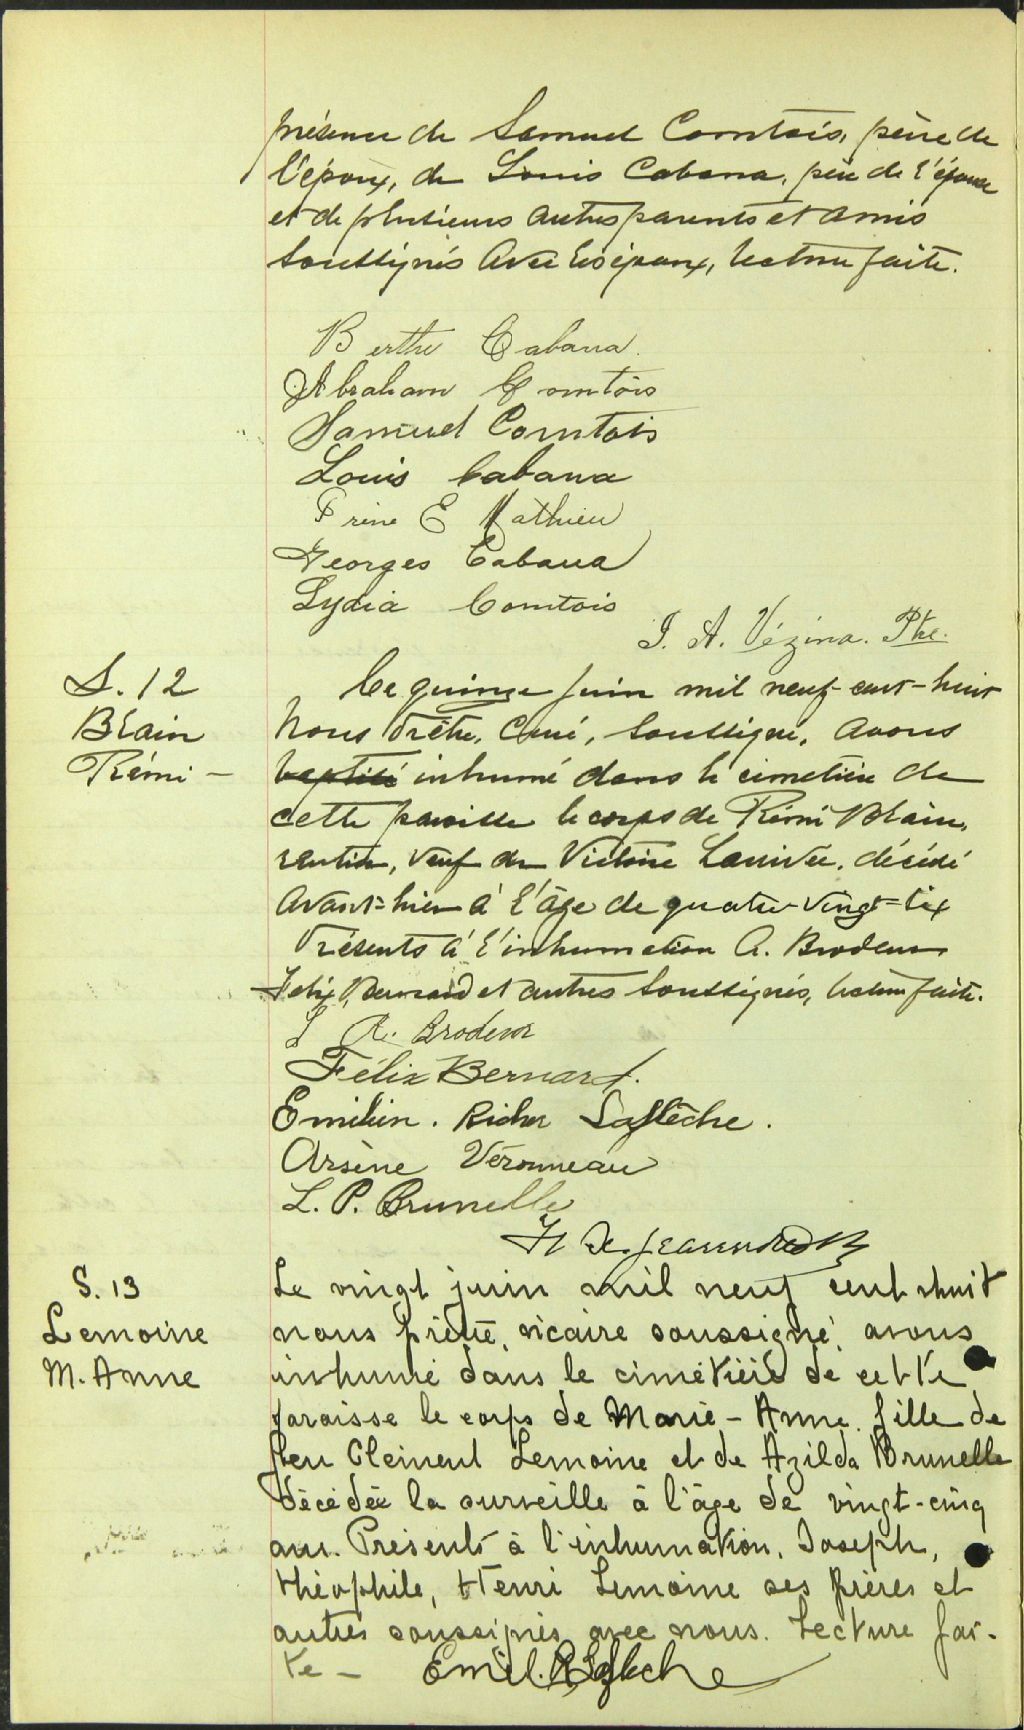 présence de Samuel Comtois, père de
l'époux, de Louis Cabana, père de l'épouse
et de plusieurs autres parents et amis
soussignés avec les époux, lecture faite.
Berthe Cabana.
Abraham Comtois
Samuel Comtois
Louis Cabana
E Mathieu
Georges Cabana
Lydia Comtois
J. A. Vézina. Ptre.
S. 12
Blain
Rémi –
Ce quinze juin mil neuf-cent-huit
Nous Prêtre, Curé, soussigné, avons
baptisé inhumé dans le cimetière de
cette paroisse le corps de Rémi Blain,
rentier, veuf de Victoire Larivée, décédé
avant-hier à l'âge de quatre-vingt-six
Présents à l'inhumation A. Brodeur
Felix Bernard et autres soussignés, lecture faite.
A. Brodeur
Félix Bernard.
Emilien. Richer Laflèche.
Arsène Véronneau
L. P. Brunelle
S. 13
Lemoine
M. Anne
Le vingt juin mil neuf cent huit
nous prêtre, vicaire soussigné, avons
inhumé dans le cimétière de cette
paroisse le corps de Marie-Anne, fille de
feu Clément Lemoine et de Azilda Brunelle
décédée la surveille à l'âge de vingt-cinq
ans. Présents à l'inhumation, Joseph,
théophile, Henri Lemoine ses frères et
autres soussignés avec nous. Lecture fai-
te – Emil. R. Laflèche